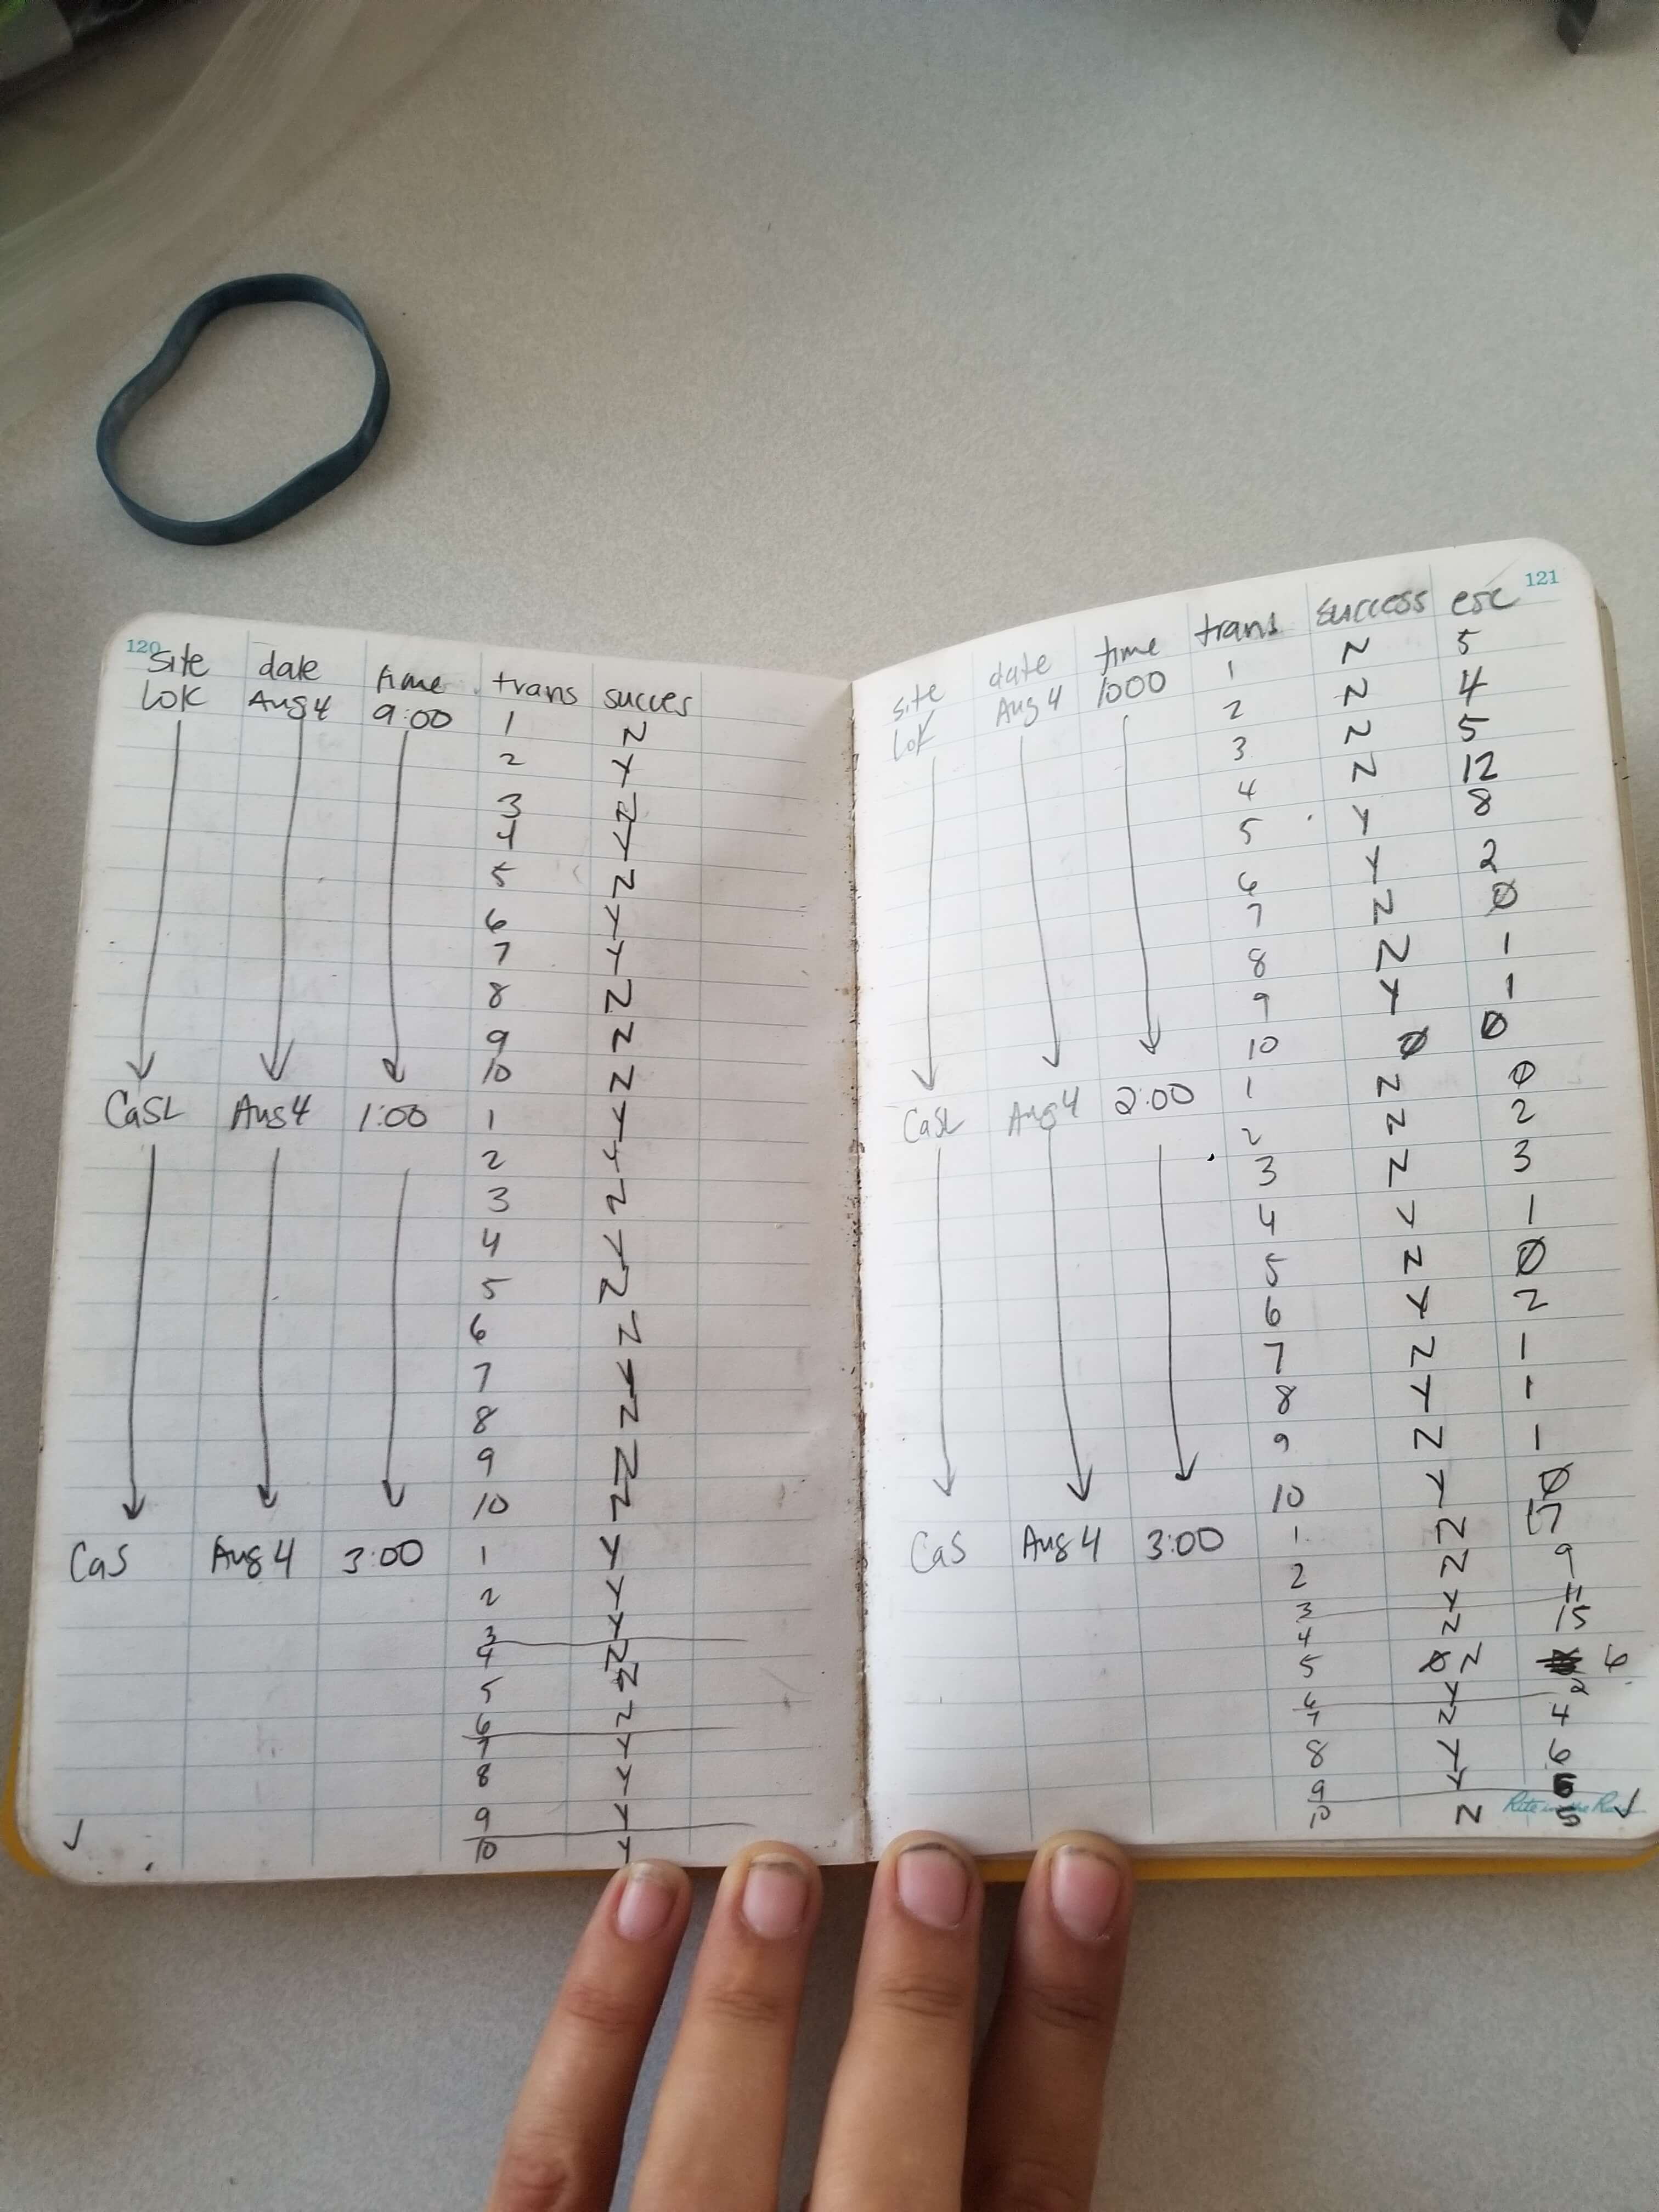 120
site date time trans succes
LOK Aug 4 9:00 1 N
2 Y
3 N
4 Y
5 N
6 Y
7 Y
8 N
9 N
10 N
CaSL Aug 4 1:00 1 Y
2 Y
3 N
4 Y
5 N
6 N
7 Y
8 N
9 N
10 N
CaS Aug 4 3:00 1 Y
2 Y
3 Y
4 N
5 N
6 N
7 Y
8 Y
9 Y
10 Y
121
site date time trans success esc
LOK Aug 4 1000 1 N 5
2 N 4
3 N 5
4 N 12
5 Y 8
6 Y 2
7 N Ø
8 N 1
9 Y 1
10 Ø Ø
CaSL Aug 4 2:00 1 N Ø
2 N 2
3 N 3
4 Y 1
5 N Ø
6 Y 2
7 N 1
8 Y 1
9 N 1
10 Y Ø
CaS Aug 4 3:00 1 N 17
2 N 9
3 Y 11
4 N 15
5 Ø N 6
6 Y 2
7 N 4
8 Y 6
9 Y
10 N 5
Rite in the Rain